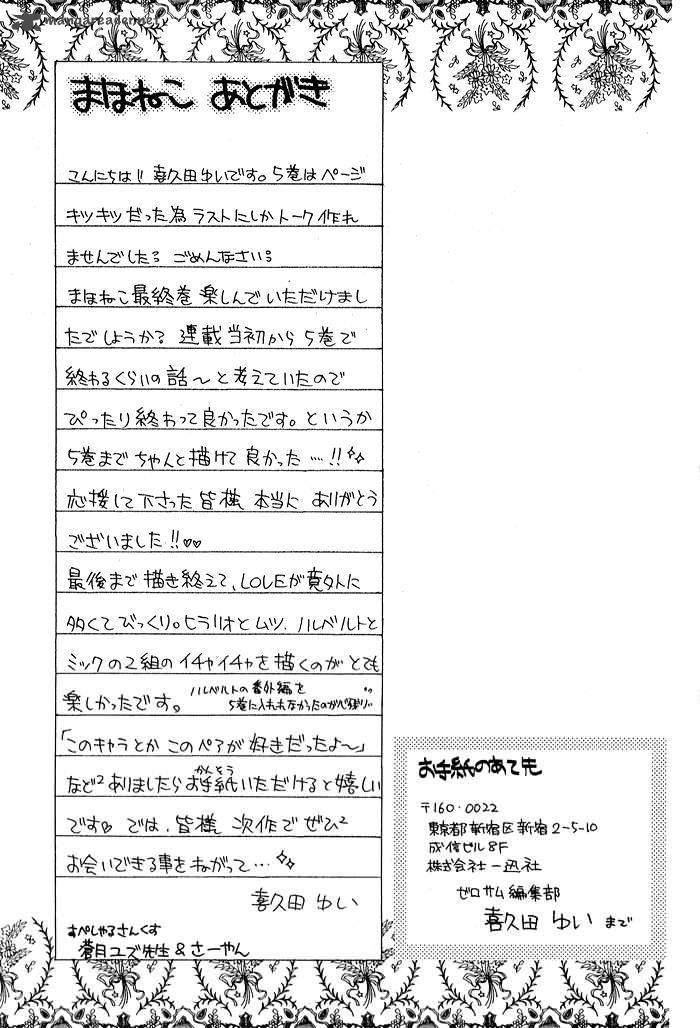 mangareader.net
まほねこ あとがき
こんにちは!! 喜久田ゆいです。5巻はページ
キツキツだった為ラストにしかトーク作れ
ませんでした ごめんなさい
まほねこ最終巻 楽しんでいただけまし
たでしょうか? 連載当初から 5巻で
終わるくらいの話〜と考えていたので
ぴったり終わって良かったです。というか
5巻まで ちゃんと描けて 良かった …!!
応援して下さった 皆様 本当に ありがとう
ございました!!♡♡
最後まで描き終えて、LOVEが意外に
多くてびっくり。ヒラリオとムツ、ハルベルトと
ミックの2組のイチャイチャを描くのがとても
楽しかったです。
ハルベルトの番外編を
5巻に入れれなかったのが心残り
「このキャラとか このペアが 好きだったよ〜」
など²ありましたらお手紙いただけると嬉しい
かんそう
です♡ では、皆様 次作で ぜひ²
お会いできる事をねがって…
喜久田 ゆい
すぺしゃるさんくす
蒼月ユブ先生 & さーやん
お手紙のあて先
〒160-0022
東京都新宿区新宿2-5-10
成信ビル8F
株式会社一迅社
ゼロサム編集部
喜久田 ゆい まで